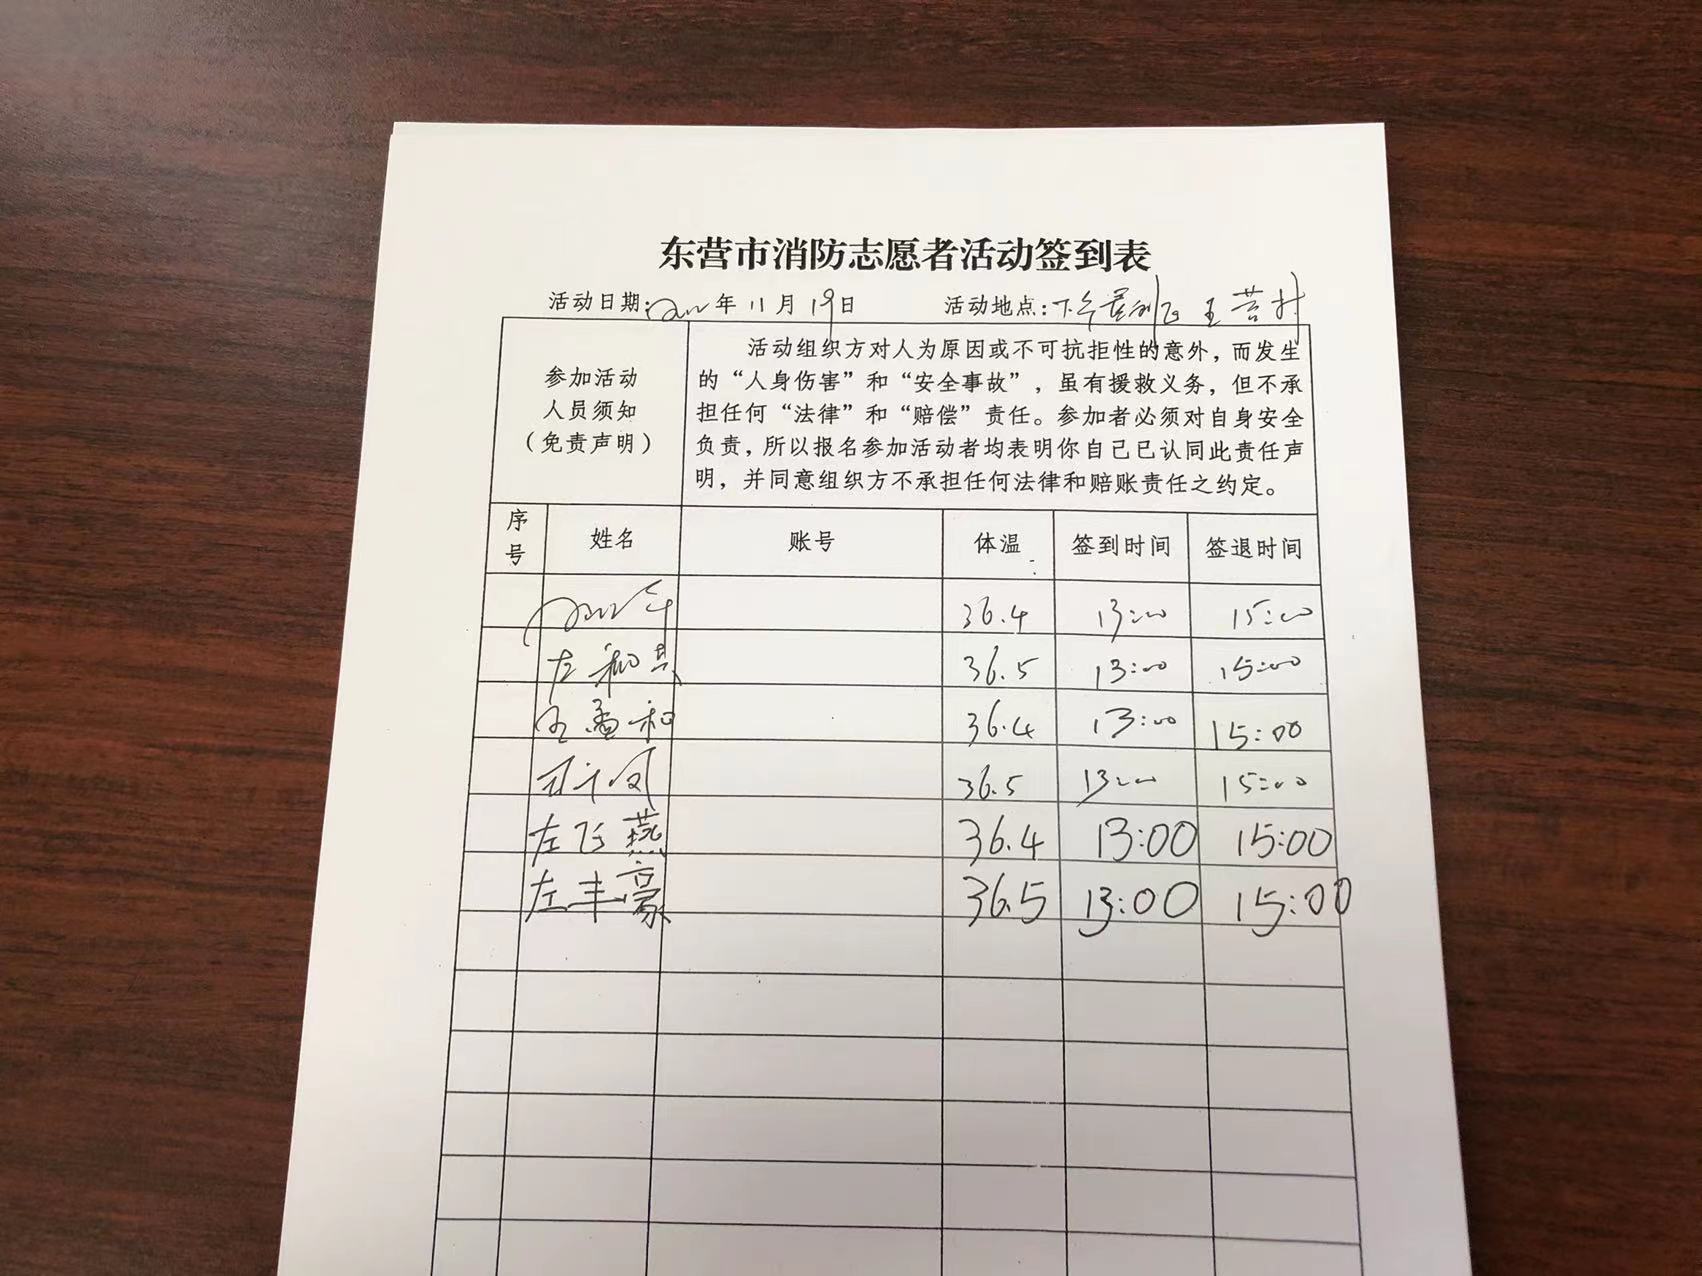 东营市消防志愿者活动签到表
活动日期: 年11月19日 活动地点: 王营村
参加活动
人员须知
（免责声明）
活动组织方对人为原因或不可抗拒性的意外，而发生
的“人身伤害”和“安全事故”，虽有援救义务，但不承
担任何“法律”和“赔偿”责任。参加者必须对自身安全
负责，所以报名参加活动者均表明你自己已认同此责任声
明，并同意组织方不承担任何法律和赔账责任之约定。
序号 姓名 账号 体温 签到时间 签退时间
36.4 13:00 15:00
左 36.5 13:00 15:00
孟和 36.4 13:00 15:00
36.5 13:00 15:00
左飞燕 36.4 13:00 15:00
左丰豪 36.5 13:00 15:00